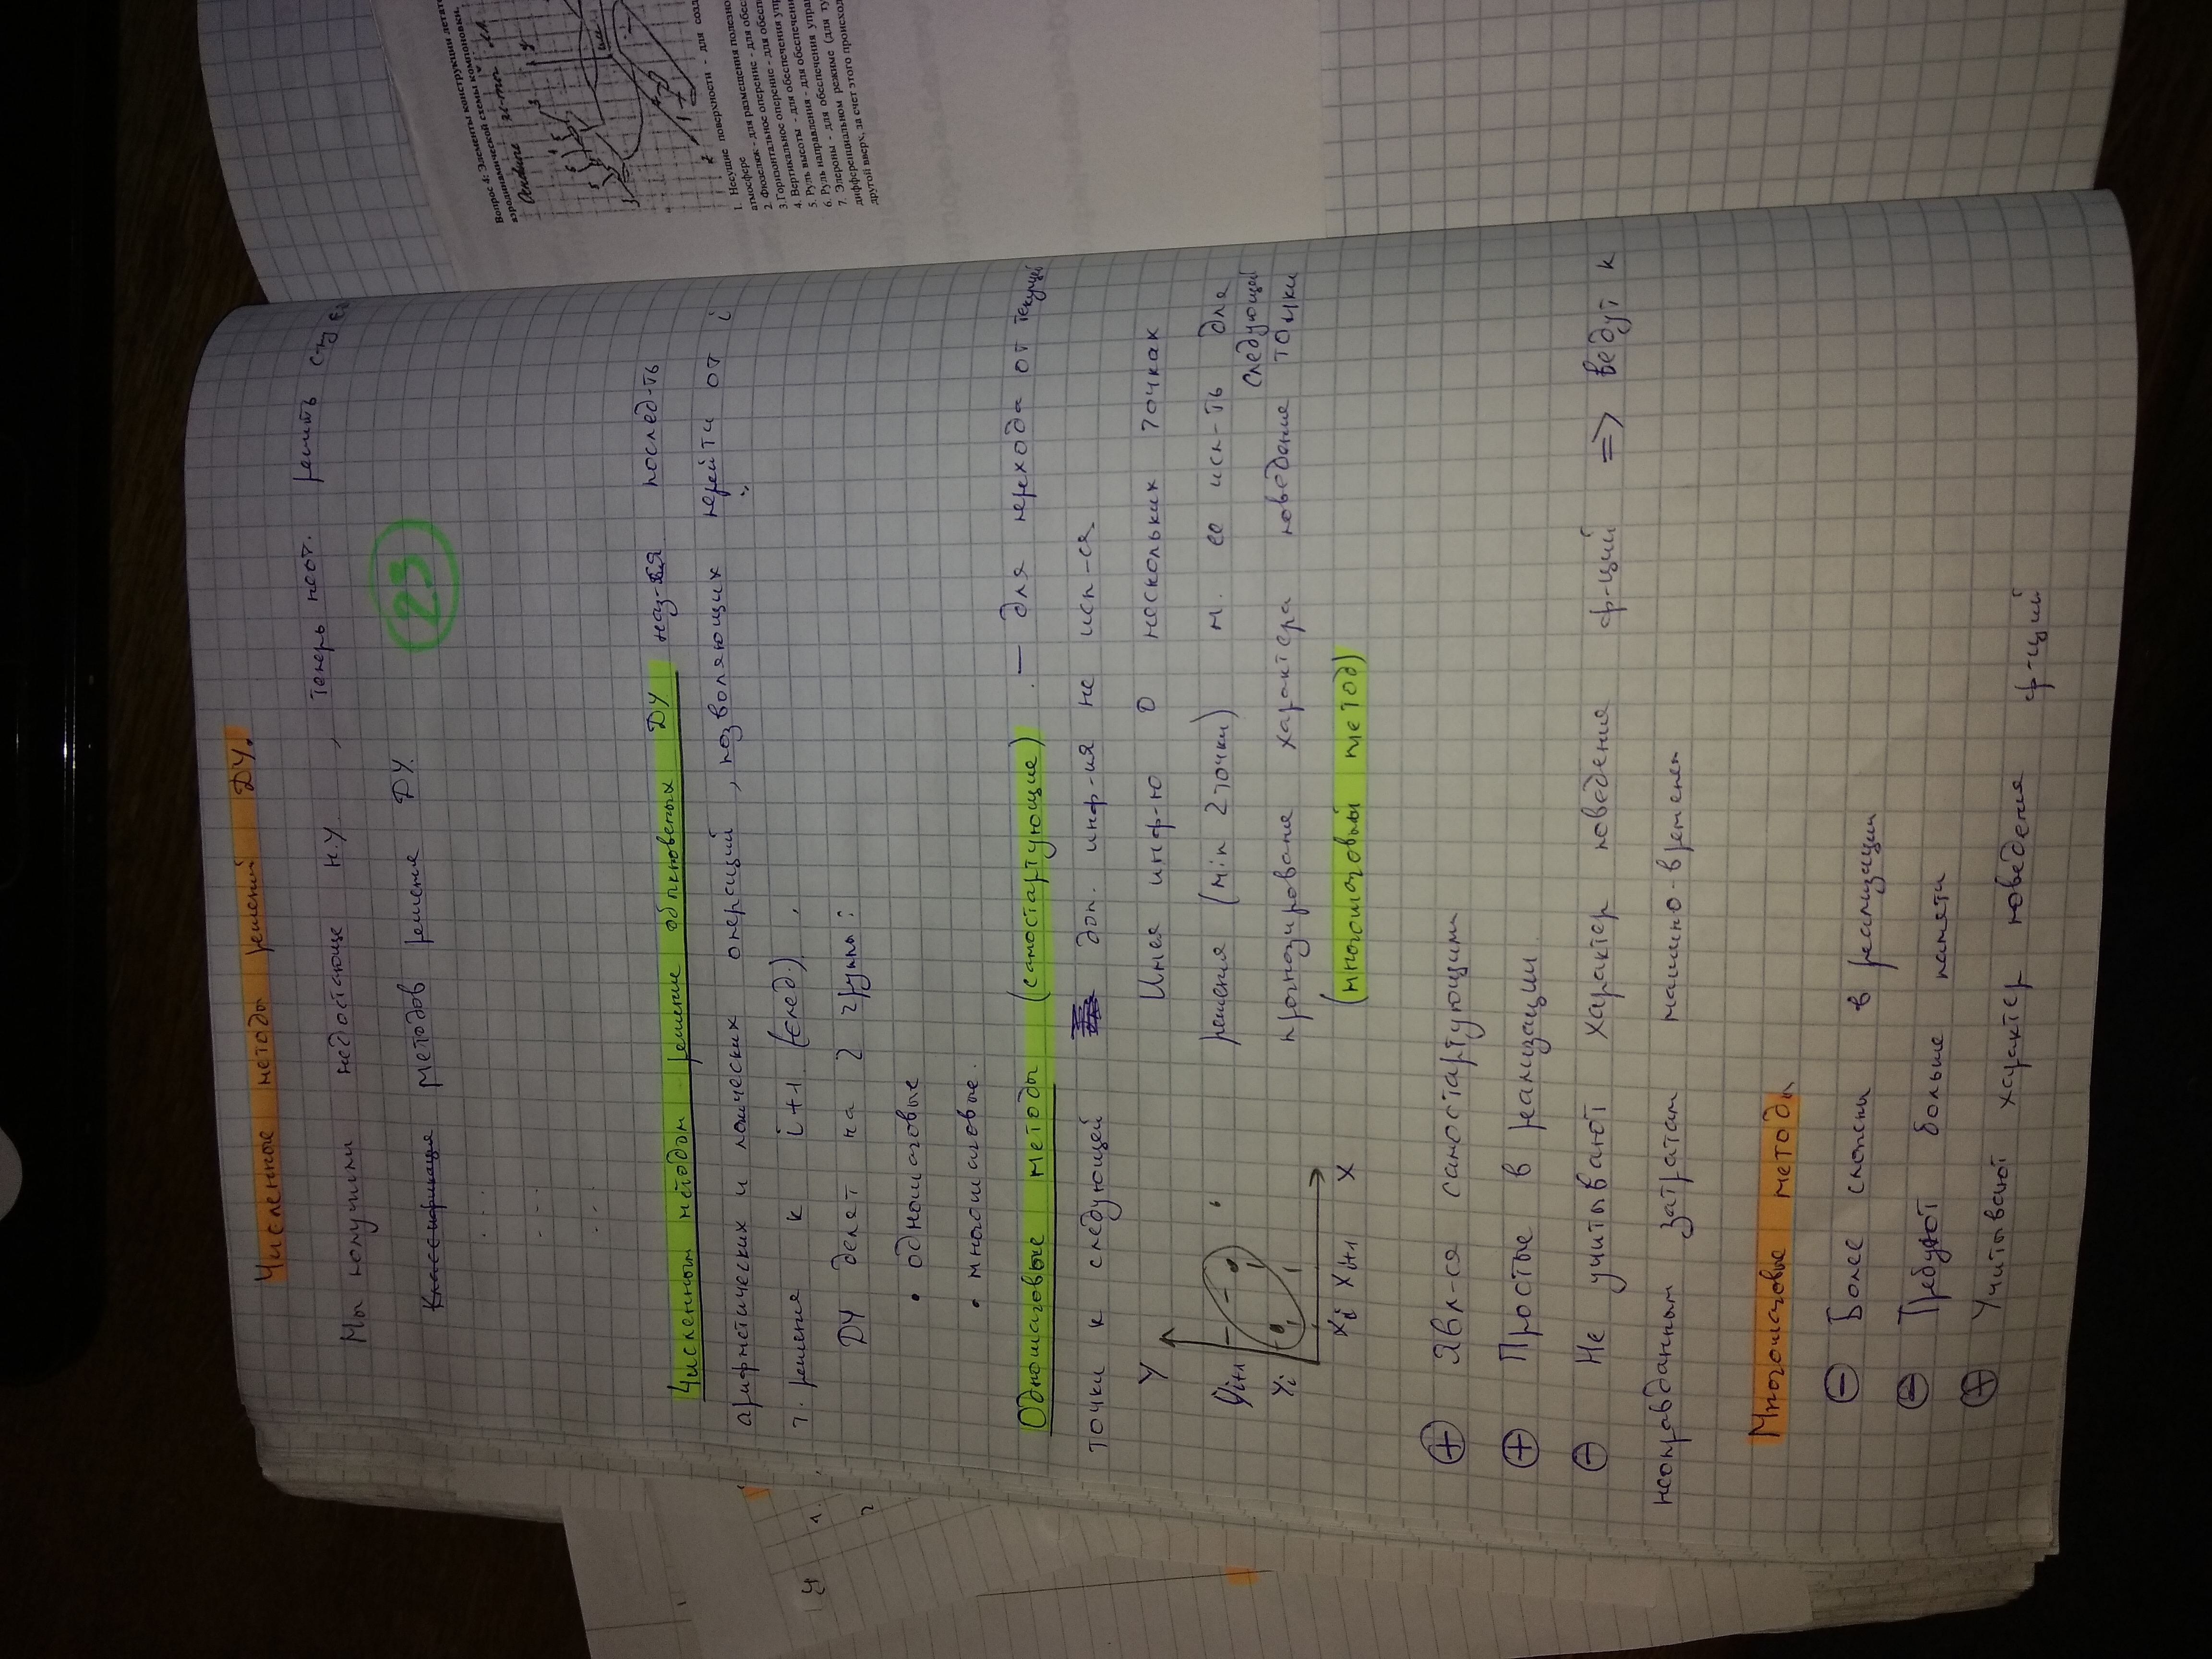 Численные методы решений ДУ.
Мы получили недостающие н.у., теперь необ. решить
~~Классификация~~ методов решения ДУ.
23
Численным методом решение обыкновенных ДУ наз-ся послед-ть
арифметических и логических операций, позволяющих перейти от i
т. решения к i+1 (след.).
ДУ делят на 2 группы:
• одношаговые
• многошаговые.
Одношаговые методы (самостартующие) — для перехода от текущей
точки к следующей доп. инф-ия не исп-ся.
Y
Yi+1
Yi
Xi Xi+1 X
Имея инф-ю о нескольких точках
решения (min 2 точки) м. ее исп-ть для
прогнозирование характера поведение следующей точки
(многошаговый метод)
⊕ Явл-ся самостартующими
⊕ Простые в реализации
⊖ Не учитывают характер поведения ф-ций => ведут к
неоправданным затратам машино-времени
Многошаговые методы
⊖ Более сложны в реализации
⊖ Требуют больше памяти
⊕ Учитывают характер поведения ф-ций
Вопрос 4: Элементы конструкции летат
аэродинамической схемы компоновки.
1. Несущие поверхности - для созд
атмосфере
2. Фюзеляж - для размещения полезно
3. Горизонтальное оперение - для обес
4. Вертикальное оперение - для обеспе
5. Руль высоты - для обеспечения упр
6. Руль направления - для обеспечени
7. Элероны - для обеспечения управ
дифференциальном режиме (для ту
другой вверх, за счет этого происход